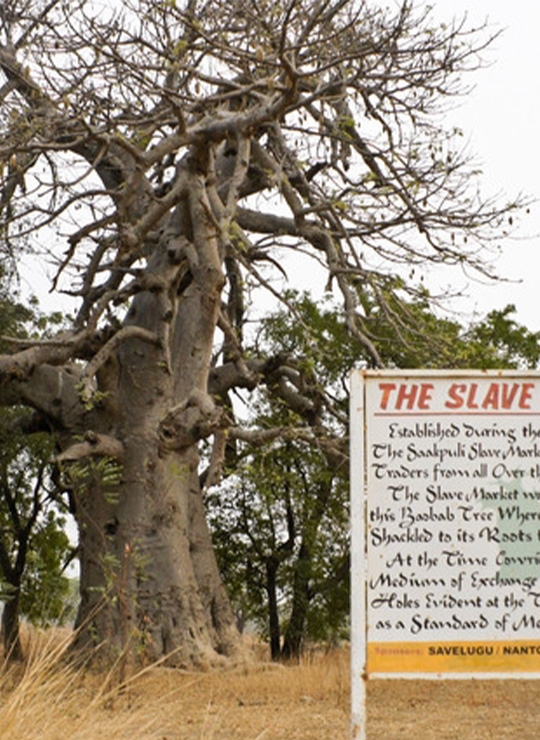 THE SLAVE
Established during the
The Saakpuli Slave Mark
Traders from all Over th
The Slave Market w
this Baobab Tree Where
Shackled to its Roots
At the Time Cowri
Medium of Exchange
Holes Evident at the T
as a Standard of Me
Sponsors: SAVELUGU / NANTO